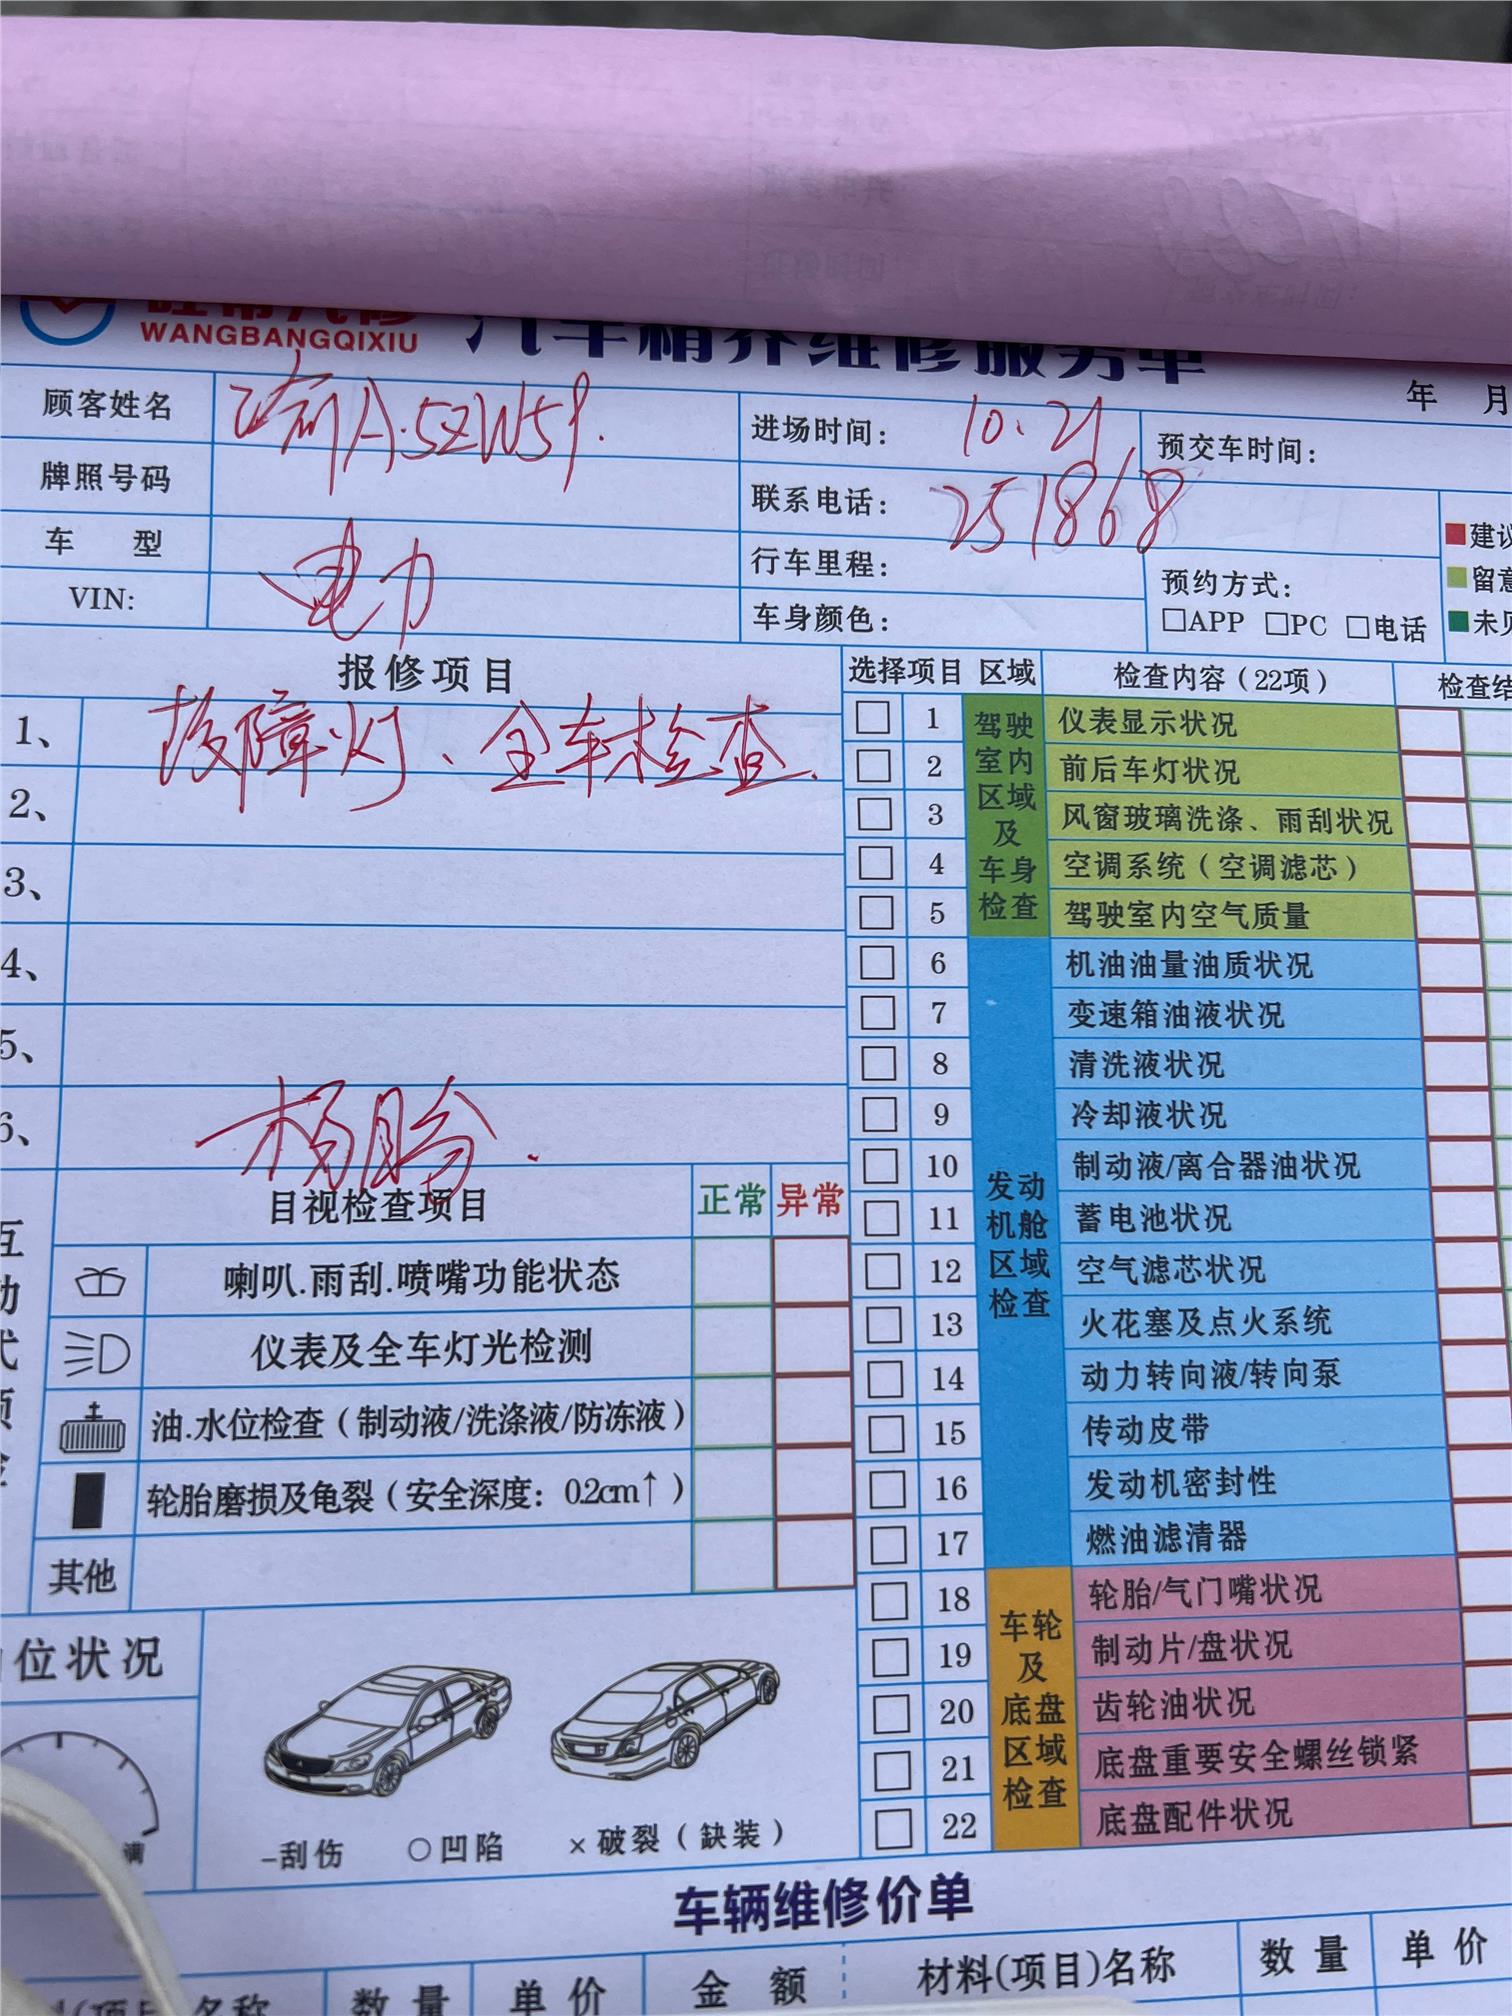 旺帮汽修
WANGBANGQIXIU
汽车精养维修服务单
年 月
顾客姓名 渝A·5ZW59.
进场时间: 10.21
预交车时间:
牌照号码
联系电话: 251868
车 型
行车里程:
预约方式:
□APP □PC □电话
建议
留意
未见
VIN: 电力
车身颜色:
报修项目
1、故障灯、全车检查.
2、
3、
4、
5、
6、 杨
选择项目 区域 检查内容(22项) 检查结
驾驶室内区域及车身检查
1 仪表显示状况
2 前后车灯状况
3 风窗玻璃洗涤、雨刮状况
4 空调系统(空调滤芯)
5 驾驶室内空气质量
发动机舱区域检查
6 机油油量油质状况
7 变速箱油液状况
8 清洗液状况
9 冷却液状况
10 制动液/离合器油状况
11 蓄电池状况
12 空气滤芯状况
13 火花塞及点火系统
14 动力转向液/转向泵
15 传动皮带
16 发动机密封性
17 燃油滤清器
车轮及底盘区域检查
18 轮胎/气门嘴状况
19 制动片/盘状况
20 齿轮油状况
21 底盘重要安全螺丝锁紧
22 底盘配件状况
互动式预检
目视检查项目 正常 异常
喇叭.雨刮.喷嘴功能状态
仪表及全车灯光检测
油.水位检查(制动液/洗涤液/防冻液)
轮胎磨损及龟裂(安全深度:0.2cm↑)
其他
位状况
满
–刮伤 ○凹陷 ×破裂(缺装)
车辆维修价单
(项目)名称 数量 单价 金额 材料(项目)名称 数量 单价